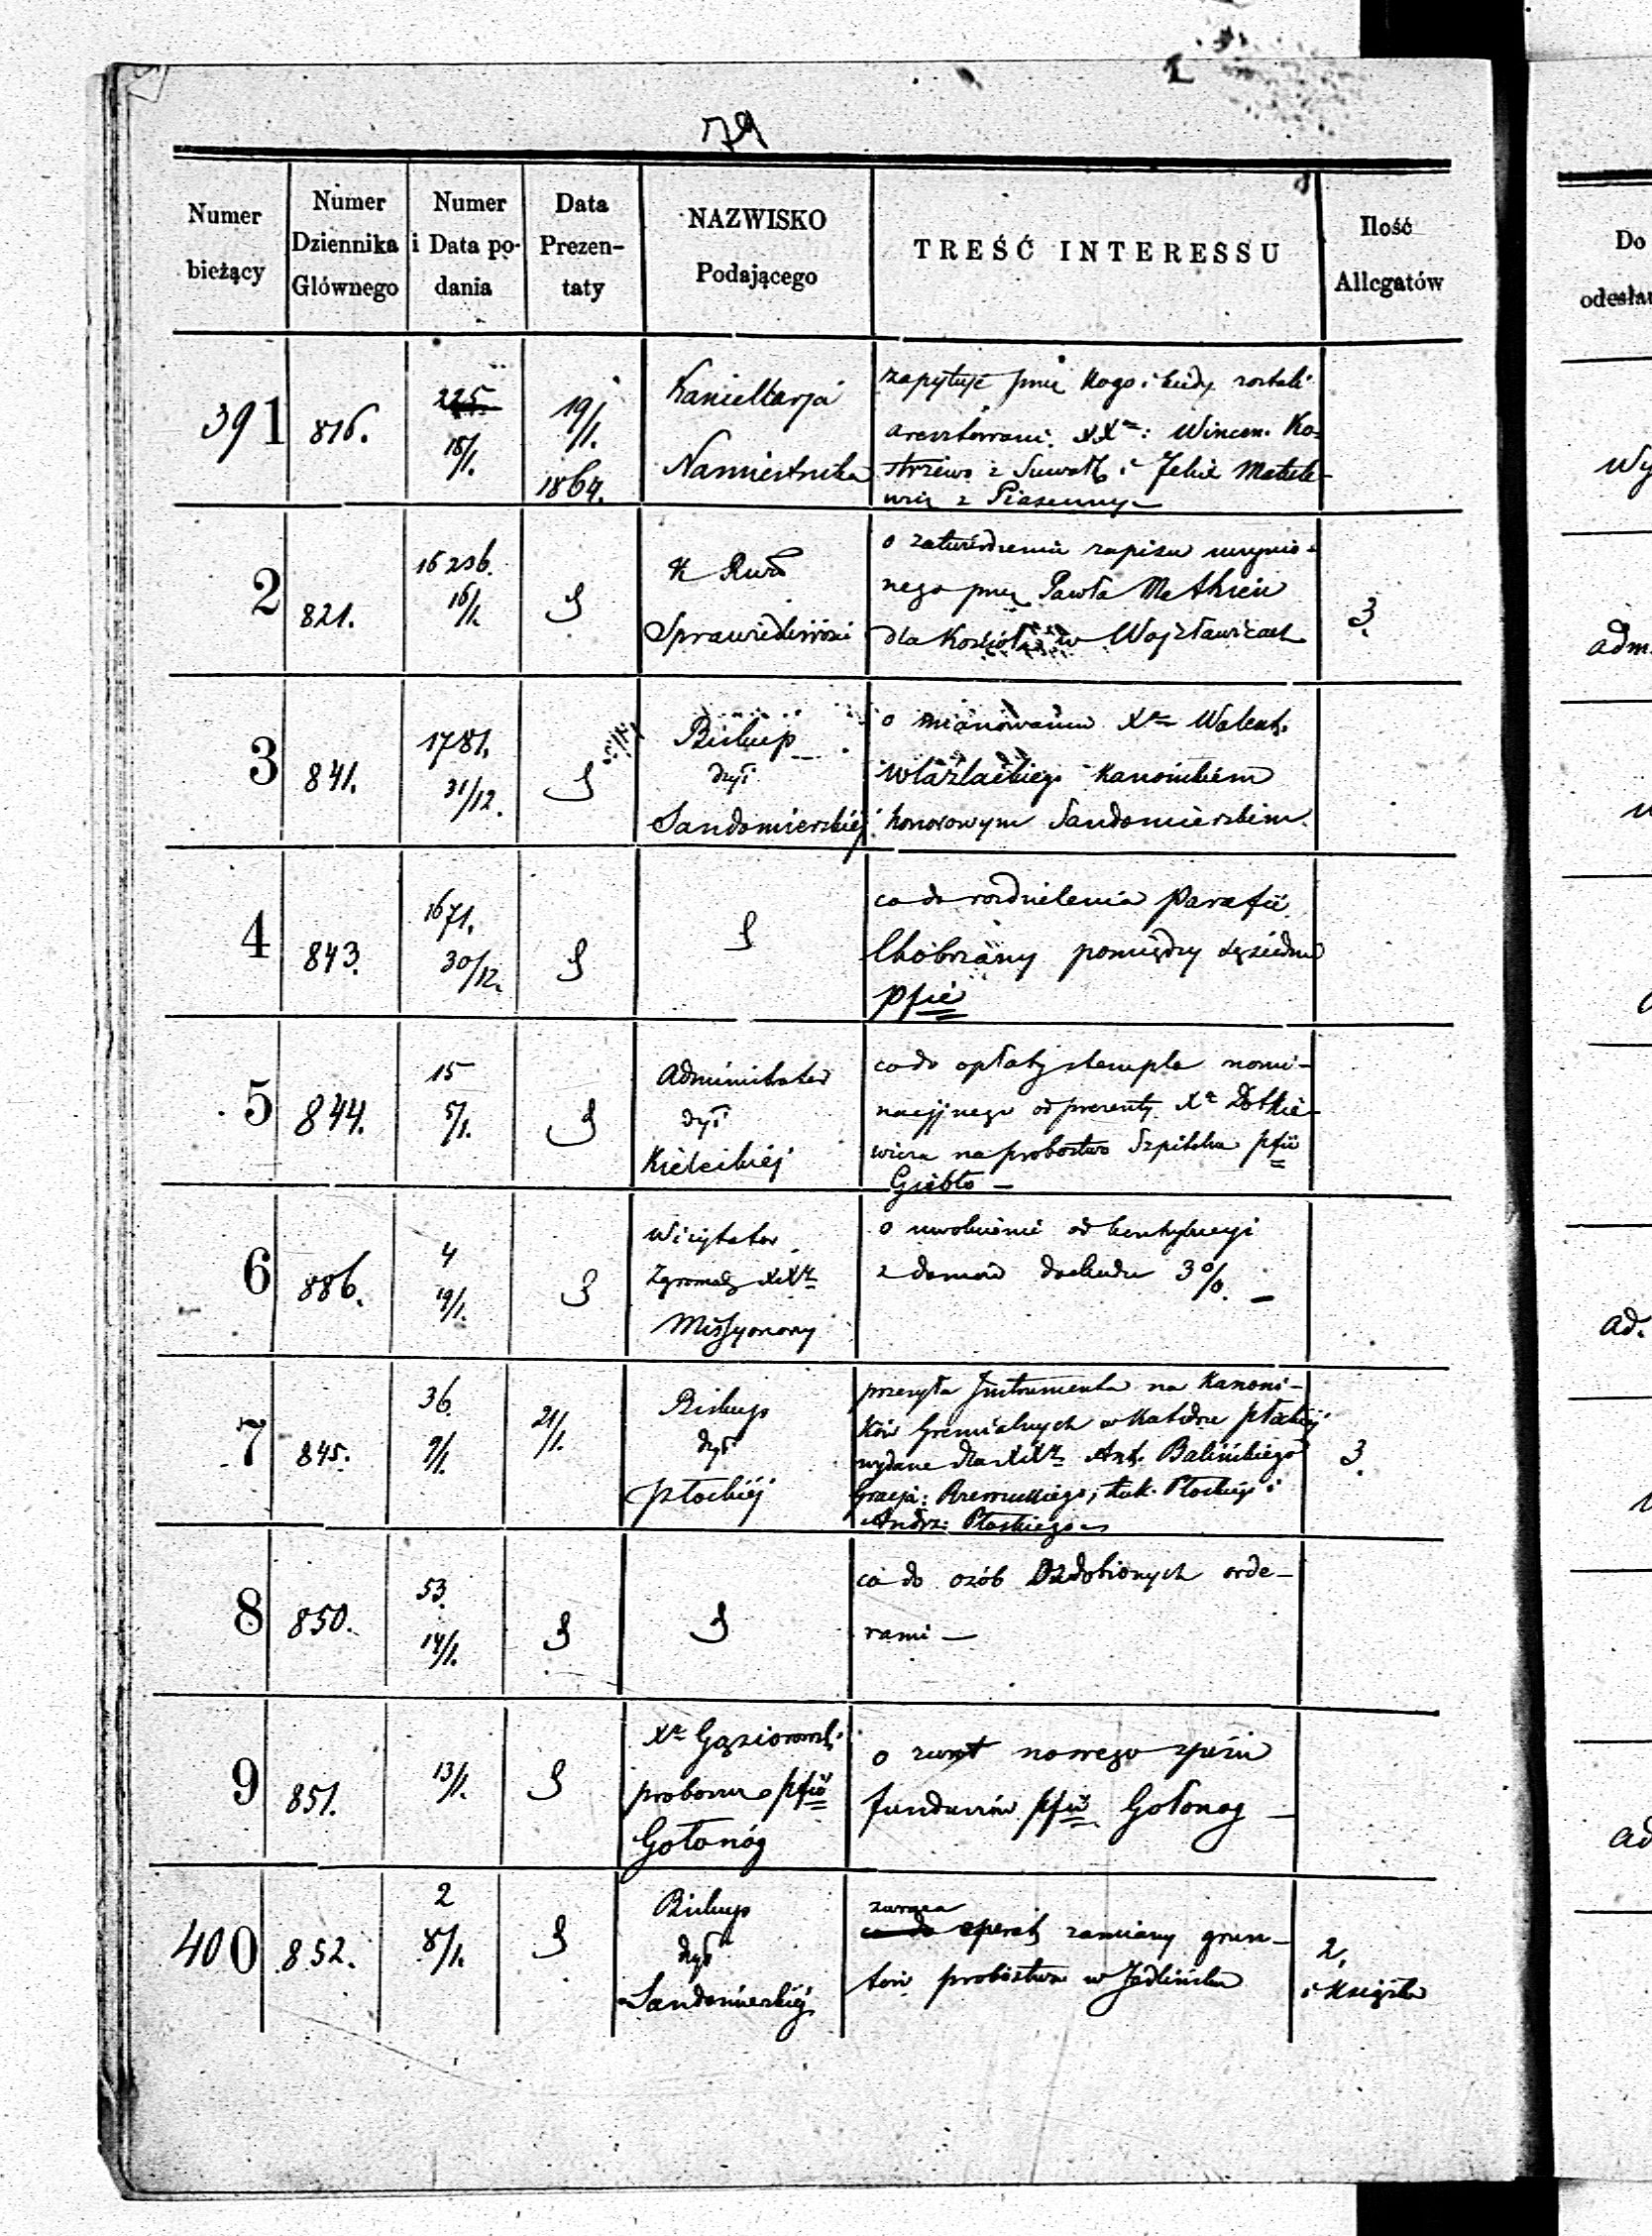 79
Numer bieżący
Numer Dziennika Głównego
Numer i Data podania
Data Prezentaty
NAZWISKO Podającego
TREŚĆ INTERESSU
Ilość Allegatów
Do
391
816.
225
18/1.
19/1. 1864.
Kancellarja
Namiestnika
zapytuje przez kogo i kiedy zostali
aresztowani XX: Wincen. Ko-
strzewa z Suwałk i Felix Matule-
wicz z Piaseczny
2
821.
16236.
16/1.
K Rząd
Sprawiedliwości
o zatwierdzenie zapisu uczynio-
nego przez Pawła
dla Kościoła w Wojsławicach
3
3
841.
1781.
31/12.
Biskup
dyi
Sandomierskiej
o mianowanie Xa Walent.
kanonikiem
honorowym Sandomierskim.
4
843.
1671.
30/12.
co do rozdzielenia Parafii
Chobrzany pomiędzy sąsiednie
pfie
5
844.
15
5/1.
Administrator
dyi
Kieleckiej
co do opłaty stempla nomi-
nacyjnego od prezenty Xa
wicza na probostwo Szpitalne pfii
Giebło
6
886.
4
19/1.
Wizytator
Zgromadz XXy
Missyonarzy
o uwolnienie od kontrybucyi
z domów dochodu 3%.
7
845.
36.
9/1.
21/1.
Biskup
dyi
Płockiej
przesyła Instrumenta na Kanoni-
ków Gremialnych w Katedrze płockiej
wydane dla XXy Ant. Balińskiego
Gracja: Łuk. Płockiego i
Andrz: Płoskiego
3.
8
850.
53.
14/1.
co do osób Ozdobionych orde-
rami
9
851.
13/1.
Xa Gąsiorowski
proboszcz pfii
Gołonóg
o zwrot nowego spisu
funduszów pfii Gołonog
400
852.
2
8/1.
Biskup
dyi
Sandomierskiej
zwraca
co do operat zamiany grun-
tów probostwa w Jedlińsku
2,
i Książka